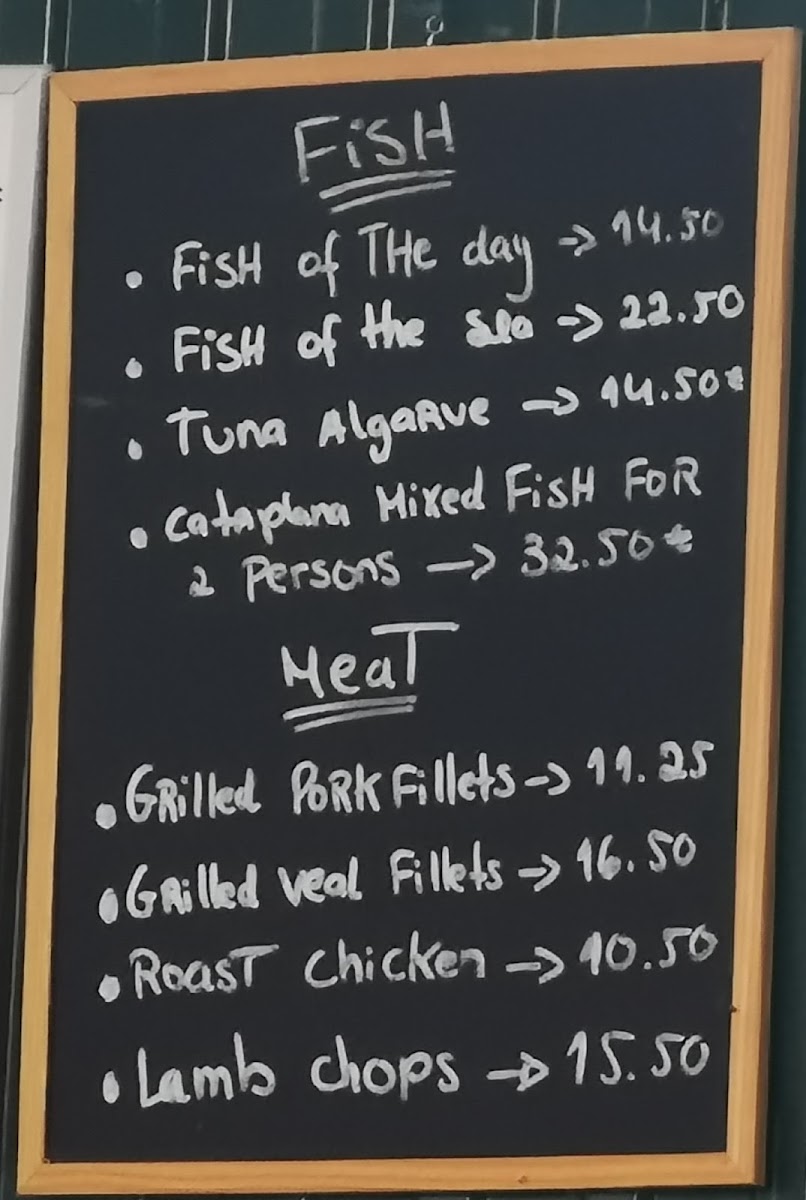 FisH
• FisH of THe day → 14.50
• FisH of the sea → 22.50
• Tuna Algarve → 14.50€
• Cataplana Mixed FisH FOR
2 Persons → 32.50€
MeaT
• GRilled PORK Fillets → 11.25
• GRilled veal Fillets → 16.50
• RoasT chicken → 10.50
• Lamb chops → 15.50